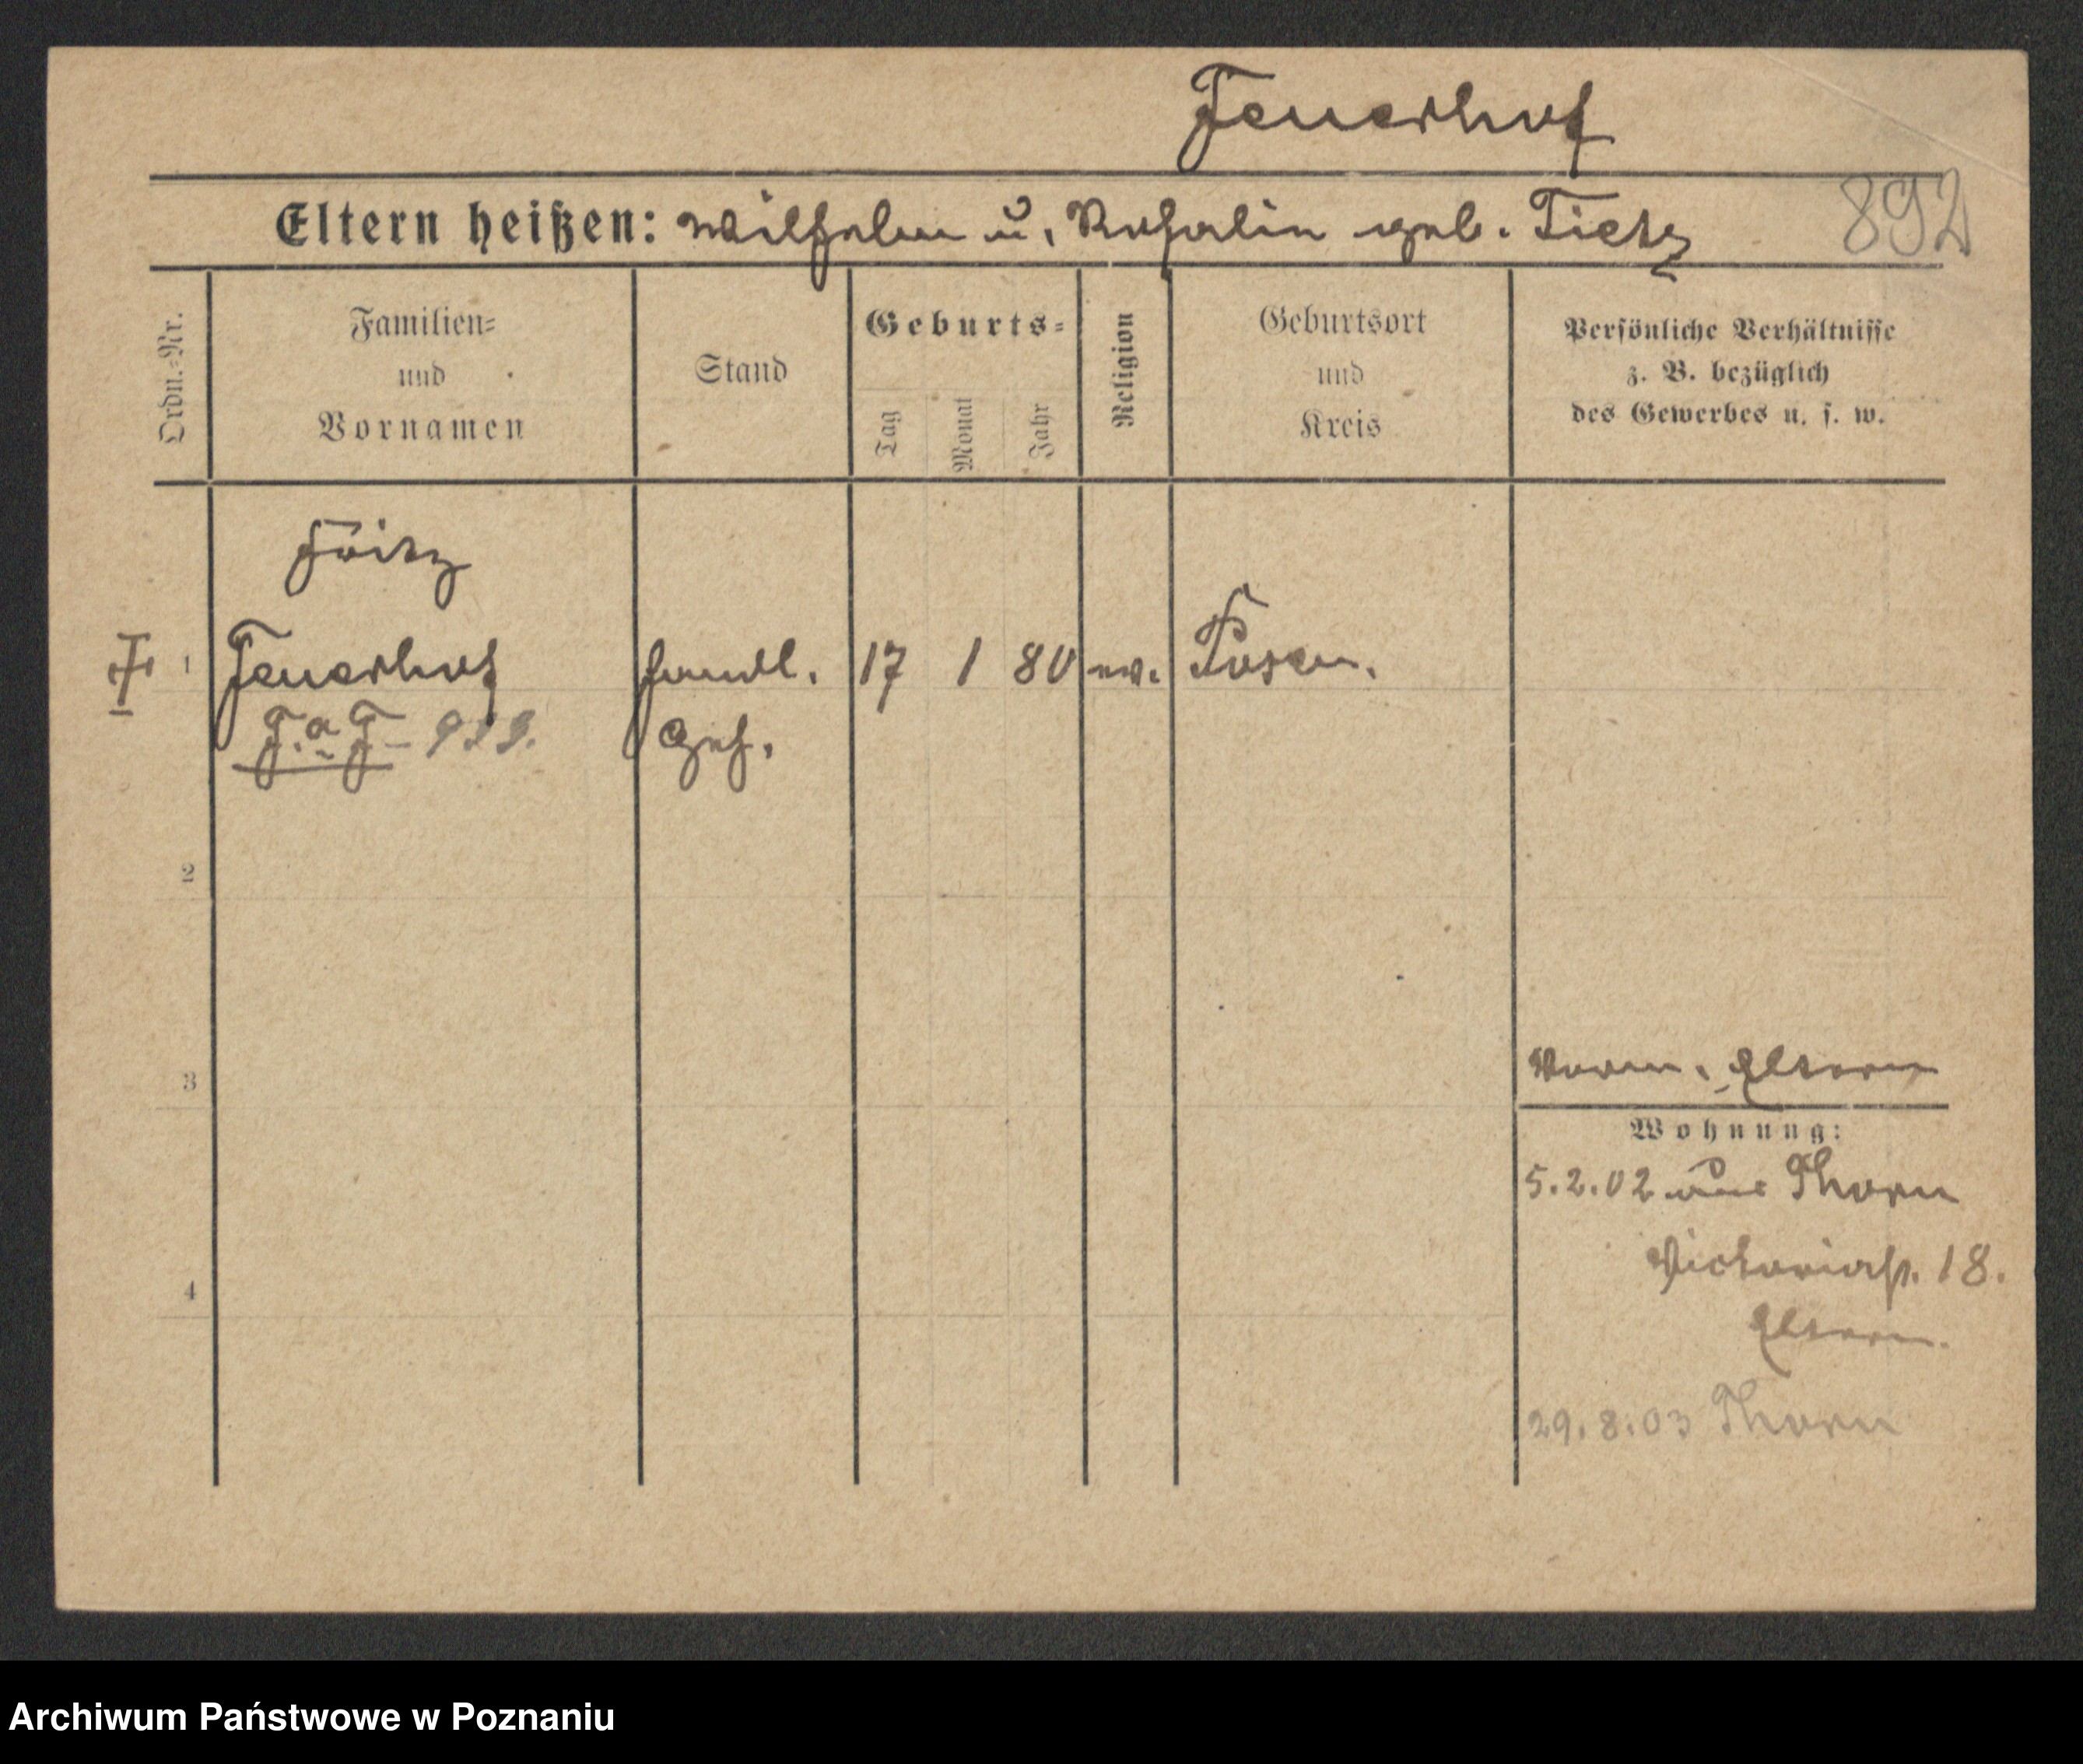 Feuerhof
892
Eltern heißen: Wilhelm u. Rosalie geb. Tietz
Ordn.-Nr.
Familien- und Vornamen
Stand
Geburts-
Tag
Monat
Jahr
Religion
Geburtsort und Kreis
Persönliche Verhältnisse
z. B. bezüglich
des Gewerbes u. s. w.
Fritz
1 Feuerhof Handl. 17 1 80 ev. Posen.
Geh.
2
3
Eltern
Wohnung:
5.2.02 aus Thorn
Victoriastr. 18.
4
Eltern.
29.8.03 Thorn
Archiwum Państwowe w Poznaniu